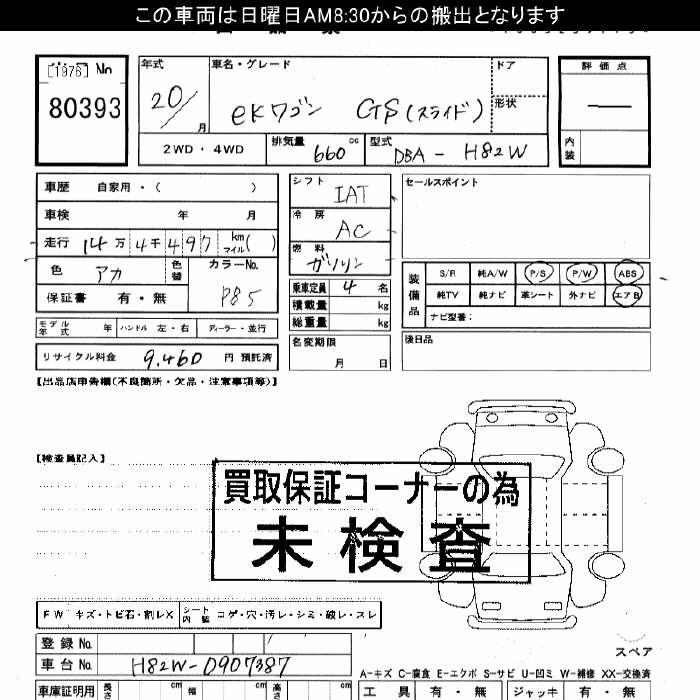 この車両は日曜日AM8:30からの搬出となります
[1976] No
80393
年式 車名・グレード ドア 評価点
20/ 月 eKワゴン GS(スライド) 形状 —
2WD・4WD 排気量 660 cc 型式 DBA-H82W 内装
車歴 自家用・( ) シフト IAT セールスポイント
車検 年 月 冷房 AC
走行 14万4千497 km マイル( ) 燃料 ガソリン
色 アカ 色替 カラーNo. P85 乗車定員 4名 装備品 S/R 純A/W P/S P/W ABS
保証書 有・無 積載量 kg 純TV 純ナビ 革シート 外ナビ エアB
総重量 kg ナビ型番:
モデル年式 年 ハンドル 左・右 ディーラー・並行 名変期限 月 日 後日品
リサイクル料金 9,460 円 預託済
【出品店申告欄(不良箇所・欠品・注意事項等)】
【検査員記入】
買取保証コーナーの為
未検査
FW キズ・トビ石・割レX シート内装 コゲ・穴・汚レ・シミ・破レ・スレ
登録No.
車台No. H82W-0907387 スペア
A-キズ C-腐食 E-エクボ S-サビ U-凹ミ W-補修 XX-交換済
車庫証明用 長さ cm 幅 cm 高さ cm 工具 有・無 ジャッキ 有・無